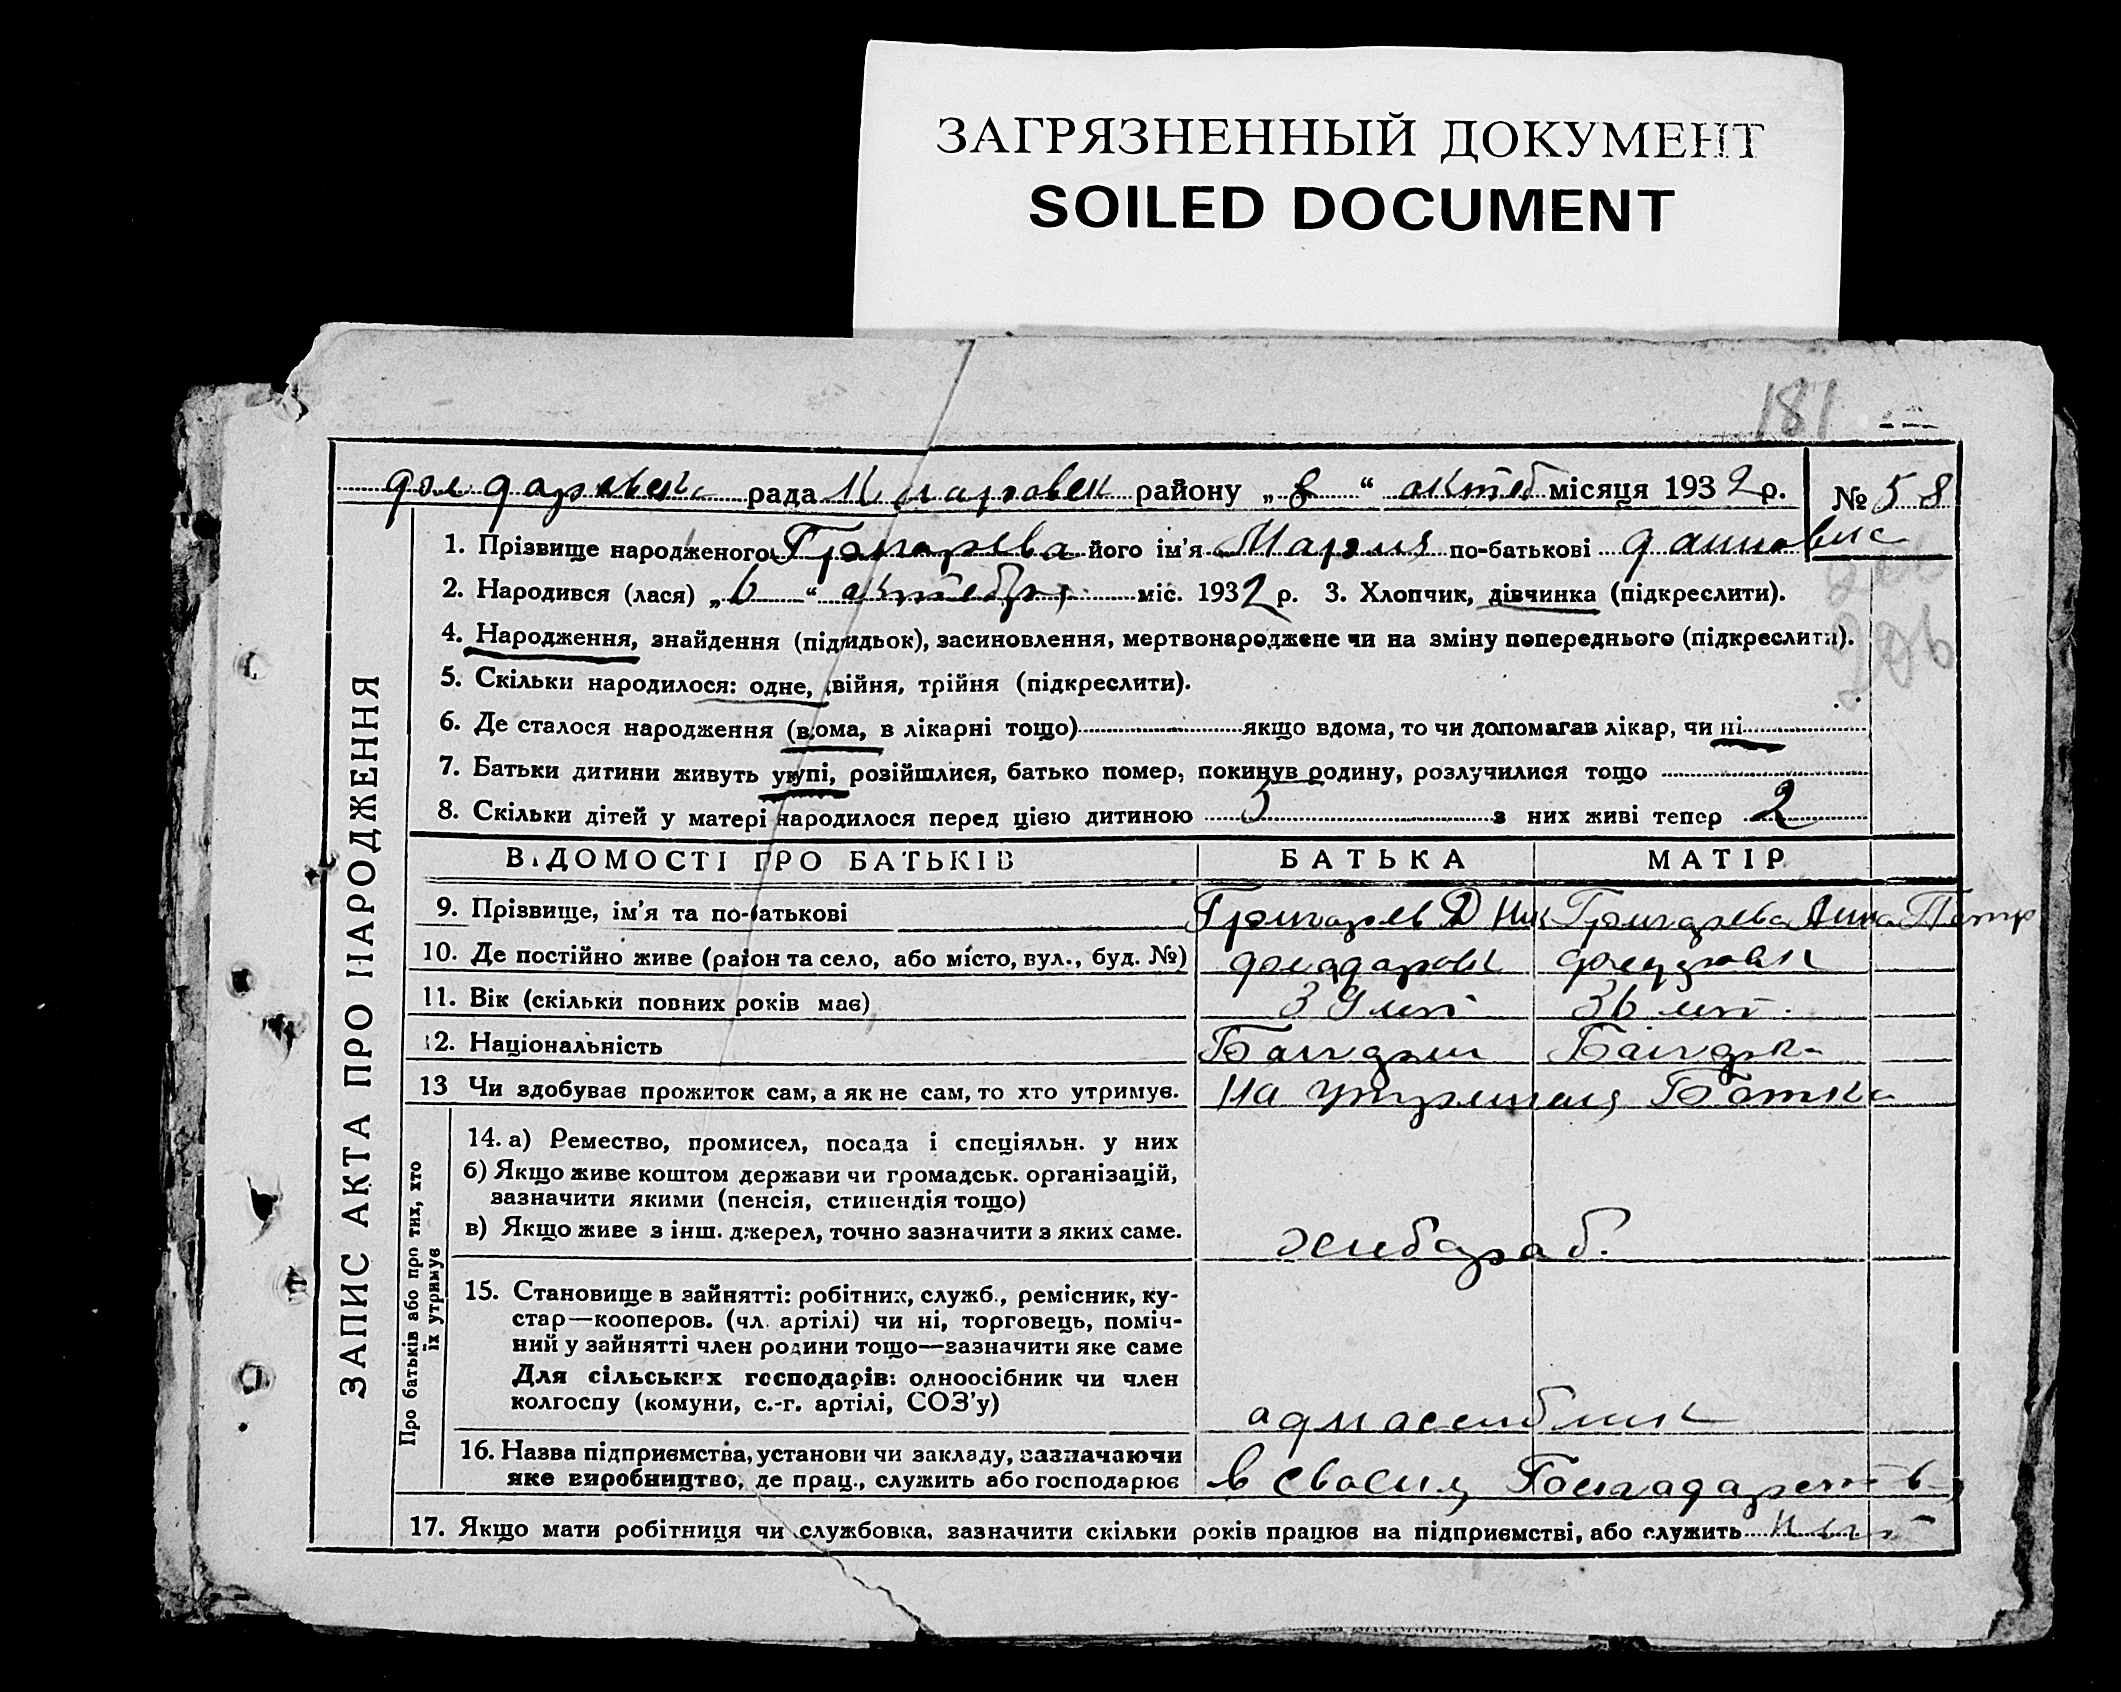 ЗАГРЯЗНЕННЫЙ ДОКУМЕНТ
SOILED DOCUMENT
181
рада району „ 8 “ октяб місяця 1932 р. № 58
1. Прізвище народженого його ім'я Мария по-батькові
2. Народився (лася) „ 6 “ октебря міс. 1932 р. 3. Хлопчик, дівчинка (підкреслити).
4. Народження, знайдення (підкидьок), засиновлення, мертвонароджене чи на зміну попереднього (підкреслити).
5. Скільки народилося: одне, двійня, трійня (підкреслити).
6. Де сталося народження (вдома, в лікарні тощо) якщо вдома, то чи допомагав лікар, чи ні
7. Батьки дитини живуть укупі, розійшлися, батько помер, покинув родину, розлучилися тощо
8. Скільки дітей у матері народилося перед цією дитиною 5 з них живі тепер 2
ВІДОМОСТІ ПРО БАТЬКІВ БАТЬКА МАТІР
9. Прізвище, ім'я та по-батькові Анна Петр
10. Де постійно живе (район та село, або місто, вул., буд. №)
11. Вік (скільки повних років має) 39 лет 36 лет.
12. Національність
13 Чи здобуває прожиток сам, а як не сам, то хто утримує. на
14. а) Ремество, промисел, посада і спеціяльн. у них
б) Якщо живе коштом держави чи громадськ. організацій,
зазначити якими (пенсія, стипендія тощо)
в) Якщо живе з інш. джерел, точно зазначити з яких саме.
15. Становище в зайнятті: робітник, служб., ремісник, ку-
стар—кооперов. (чл. артілі) чи ні, торговець, поміч-
ний у зайнятті член родини тощо—зазначити яке саме
Для сільських господарів: одноосібник чи член
колгоспу (комуни, с.-г. артілі, СОЗ'у)
16. Назва підприємства, установи чи закладу, зазначаючи
яке виробництво, де прац., служить або господарює в
17. Якщо мати робітниця чи службовка, зазначити скільки років працює на підприємстві, або служить
ЗАПИС АКТА ПРО НАРОДЖЕННЯ
Про батьків або про тих, хто
їх утримує